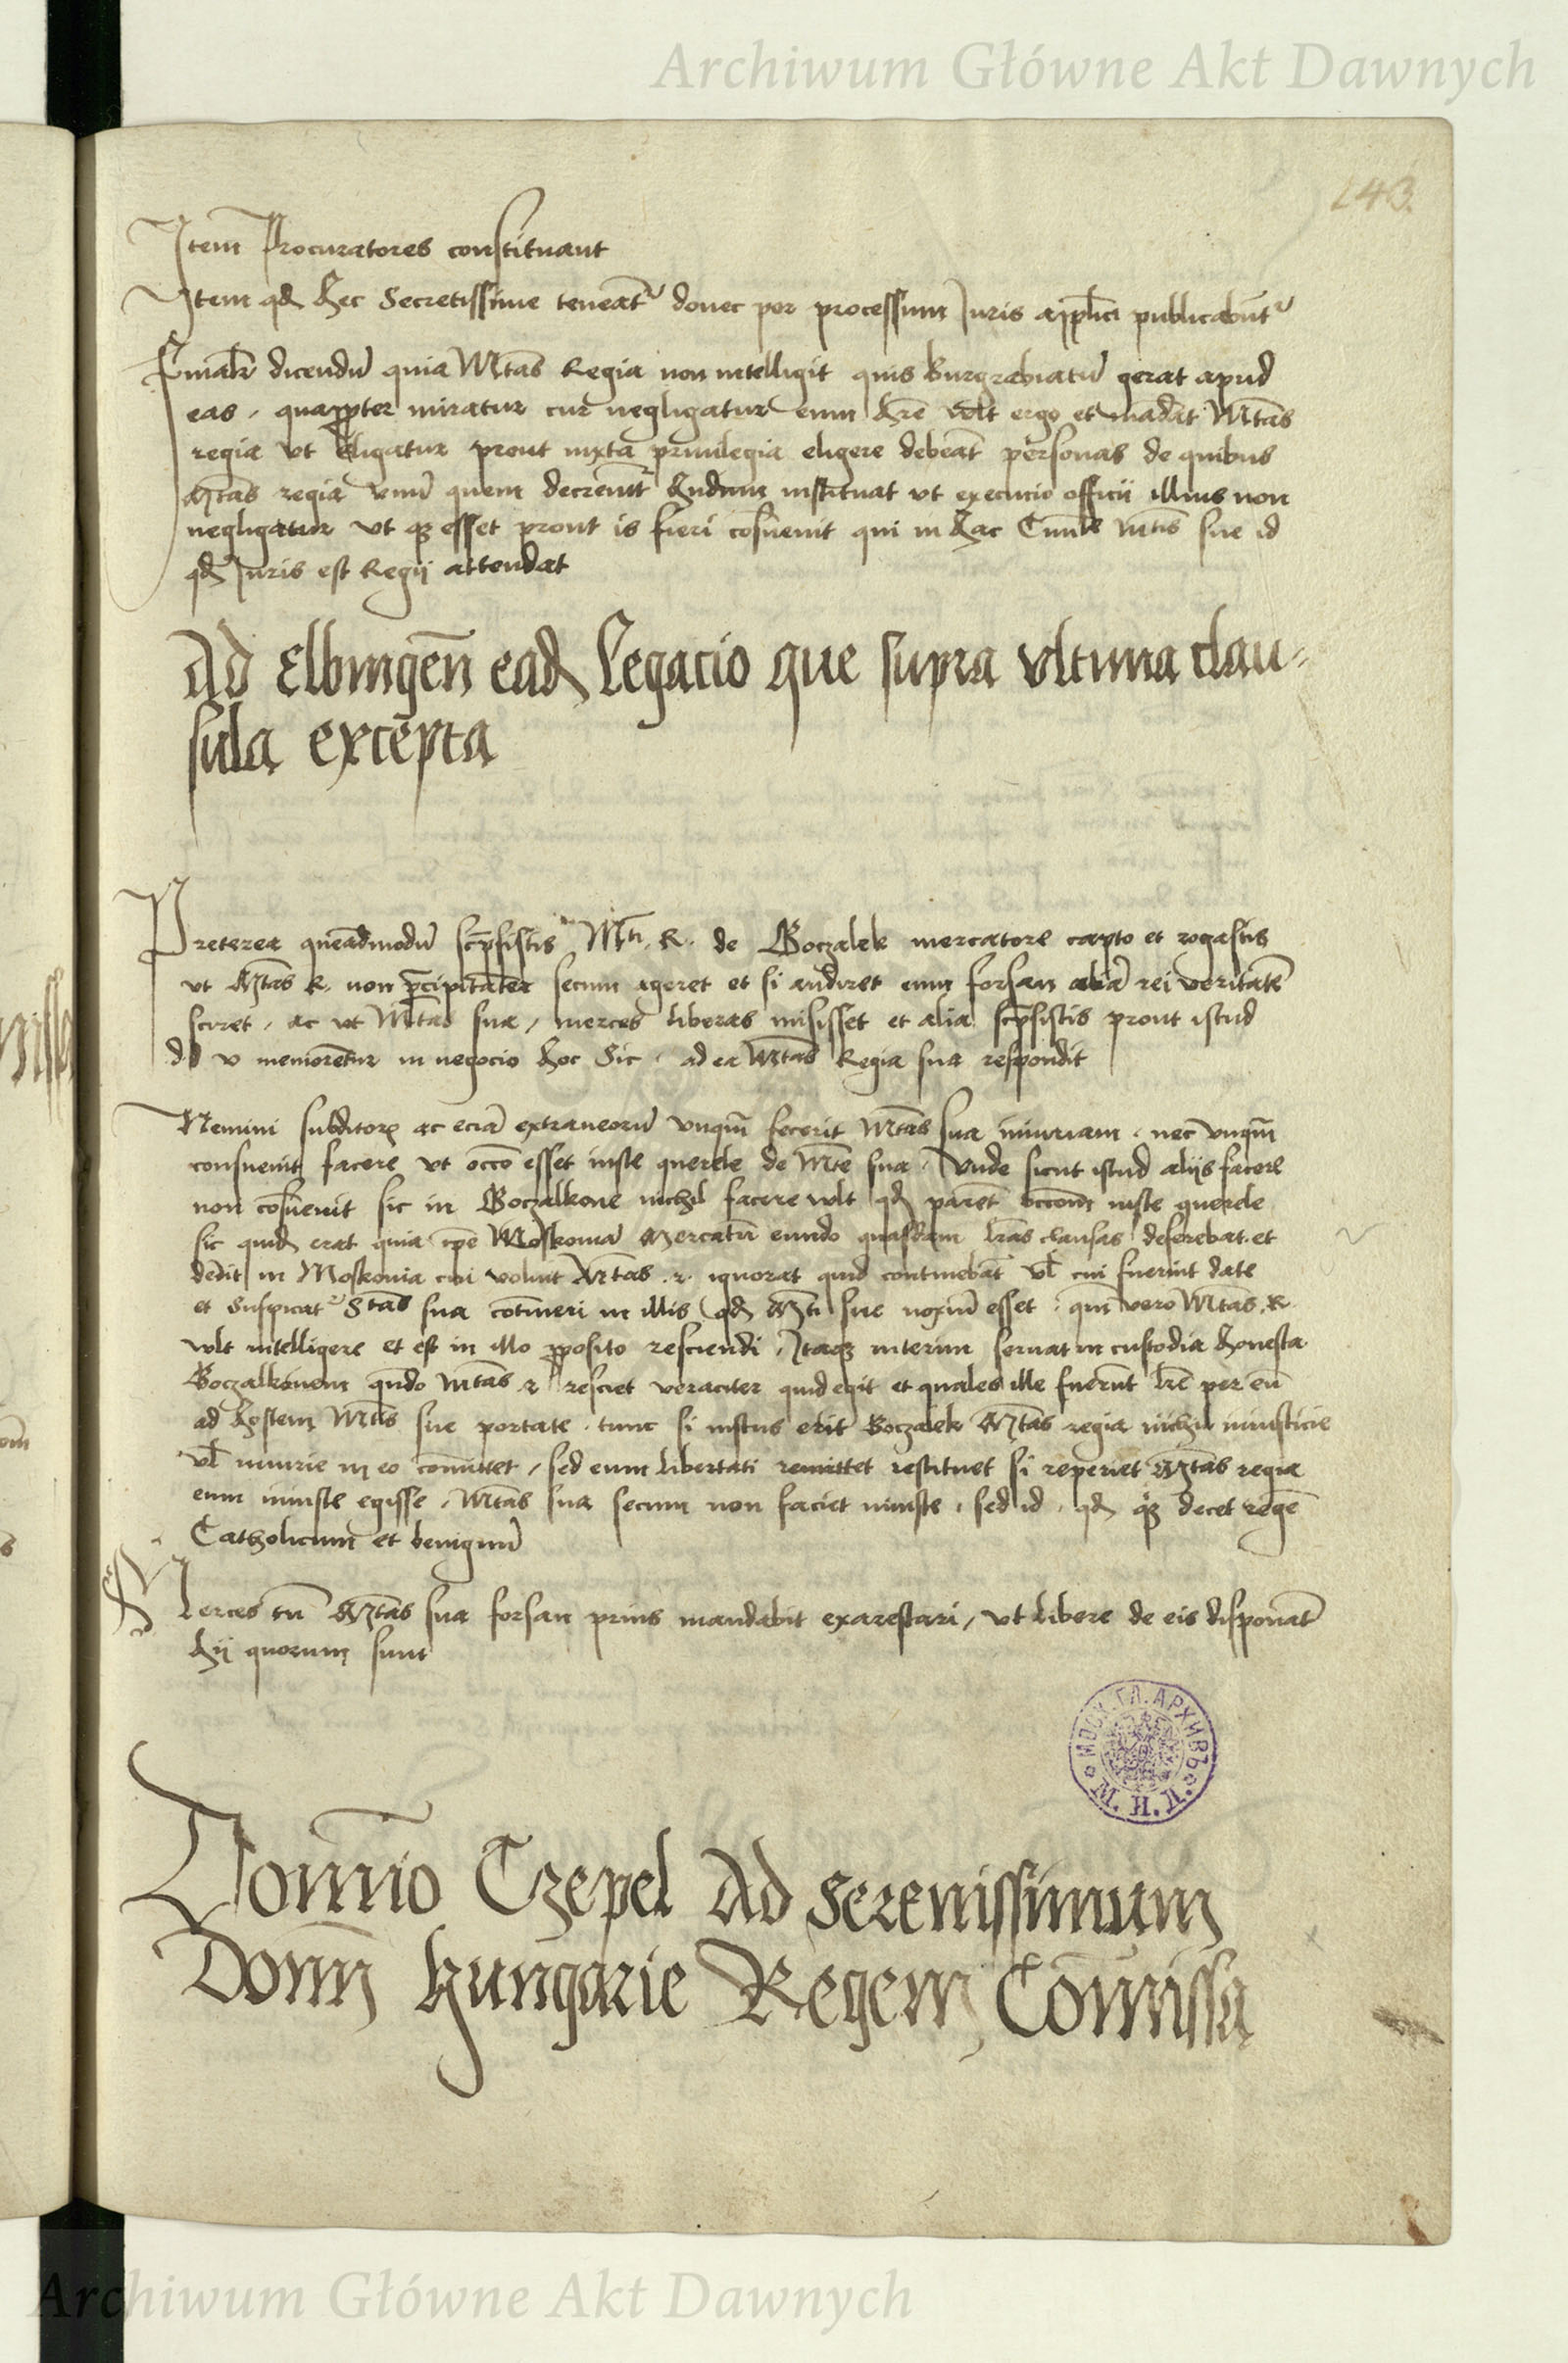 Archiwum Główne Akt Dawnych
143.
Item Procuratores constituant
Item qd hec Secretissime teneat̃r donec per processum Juris aplici publicabũtr
dicendũ quia Mtas Regia non intelligit quis burgrabiatũ gerat apud
eas, quapropter miratur cur negligatur eum hr̃e vult ergo et mãdat Mtas
regia vt eligatur prout iuxta priuilegia eligere debeãt personas de quibus
Mtas regia vnũ quem decreuit instituat vt execucio officii illius non
negligatur vt esset prout is fieri cõsueuit qui in hac Mtis sue id
qd Juris est Regij attendat
Ad Elbingeñ ead Legacio que supra vltima clau=
sula excepta
Preterea queadmodũ scpsistis Mti. R. de Boczalek mercatore capto et rogastis
vt Mtas R. non p̃cipitãter secum ageret et si audiret eum forsan aliã rei veritatẽ
sciret, ac vt Mtas sua, merces liberas misisset et alia scpsistis prout istud
in negocio hoc Sic. ad ea Mtas Regia sua respondit
Nemini subditor ac eciã extraneorũ vnqm̃ fecerit Mtas sua iniuriam. nec vnqm̃
consueuit facere vt occo esset iuste querele de Mte sua. Vnde sicut istud alijs facere
non cõsueuit sic in Boczalkone nichil facere vult qd parẽt occom̃ iuste querele
sic quid erat quia ip̃e Moskouiã Mercatũ eundo quasdam lr̃as clausas deferebat. et
dedit in Moskouia cui voluit Mtas. r. ignorat quid continebãt vl cui fuerint date
et suspicatr Stas sua cõtineri in illis qd Mti sue noxiũ esset: qm̃ vero Mtas. R.
vult intelligere et est in illo proposito resciendi, Itaq interim seruat in custodia honesta
Boczalkonem qñdo Mtas r resciet veraciter quid egit et quales ille fuerũt lr̃e per eũ
ad hostem Mtis sue portate. tunc si iustus erit Boczalek Mtas regia nichil iniusticie
vl iniurie in eo cõmittet, sed eum libertati remittet restituet si reperiet Mtas regia
eum iniuste egisse, Mtas sua secum non faciet iniuste, sed id, qd decet regẽ
Catholicum et benignũ
Merces tñ Mtas sua forsan prius mandabit exarestari, vt libere de eis disponãt
hij quorum sunt
МОСК. ГЛ. АРХИВЪ
М. И. Д.
Domĩo Czepel Ad Serenissimum
Domĩ hungarie Regem Cõmissa
Archiwum Główne Akt Dawnych